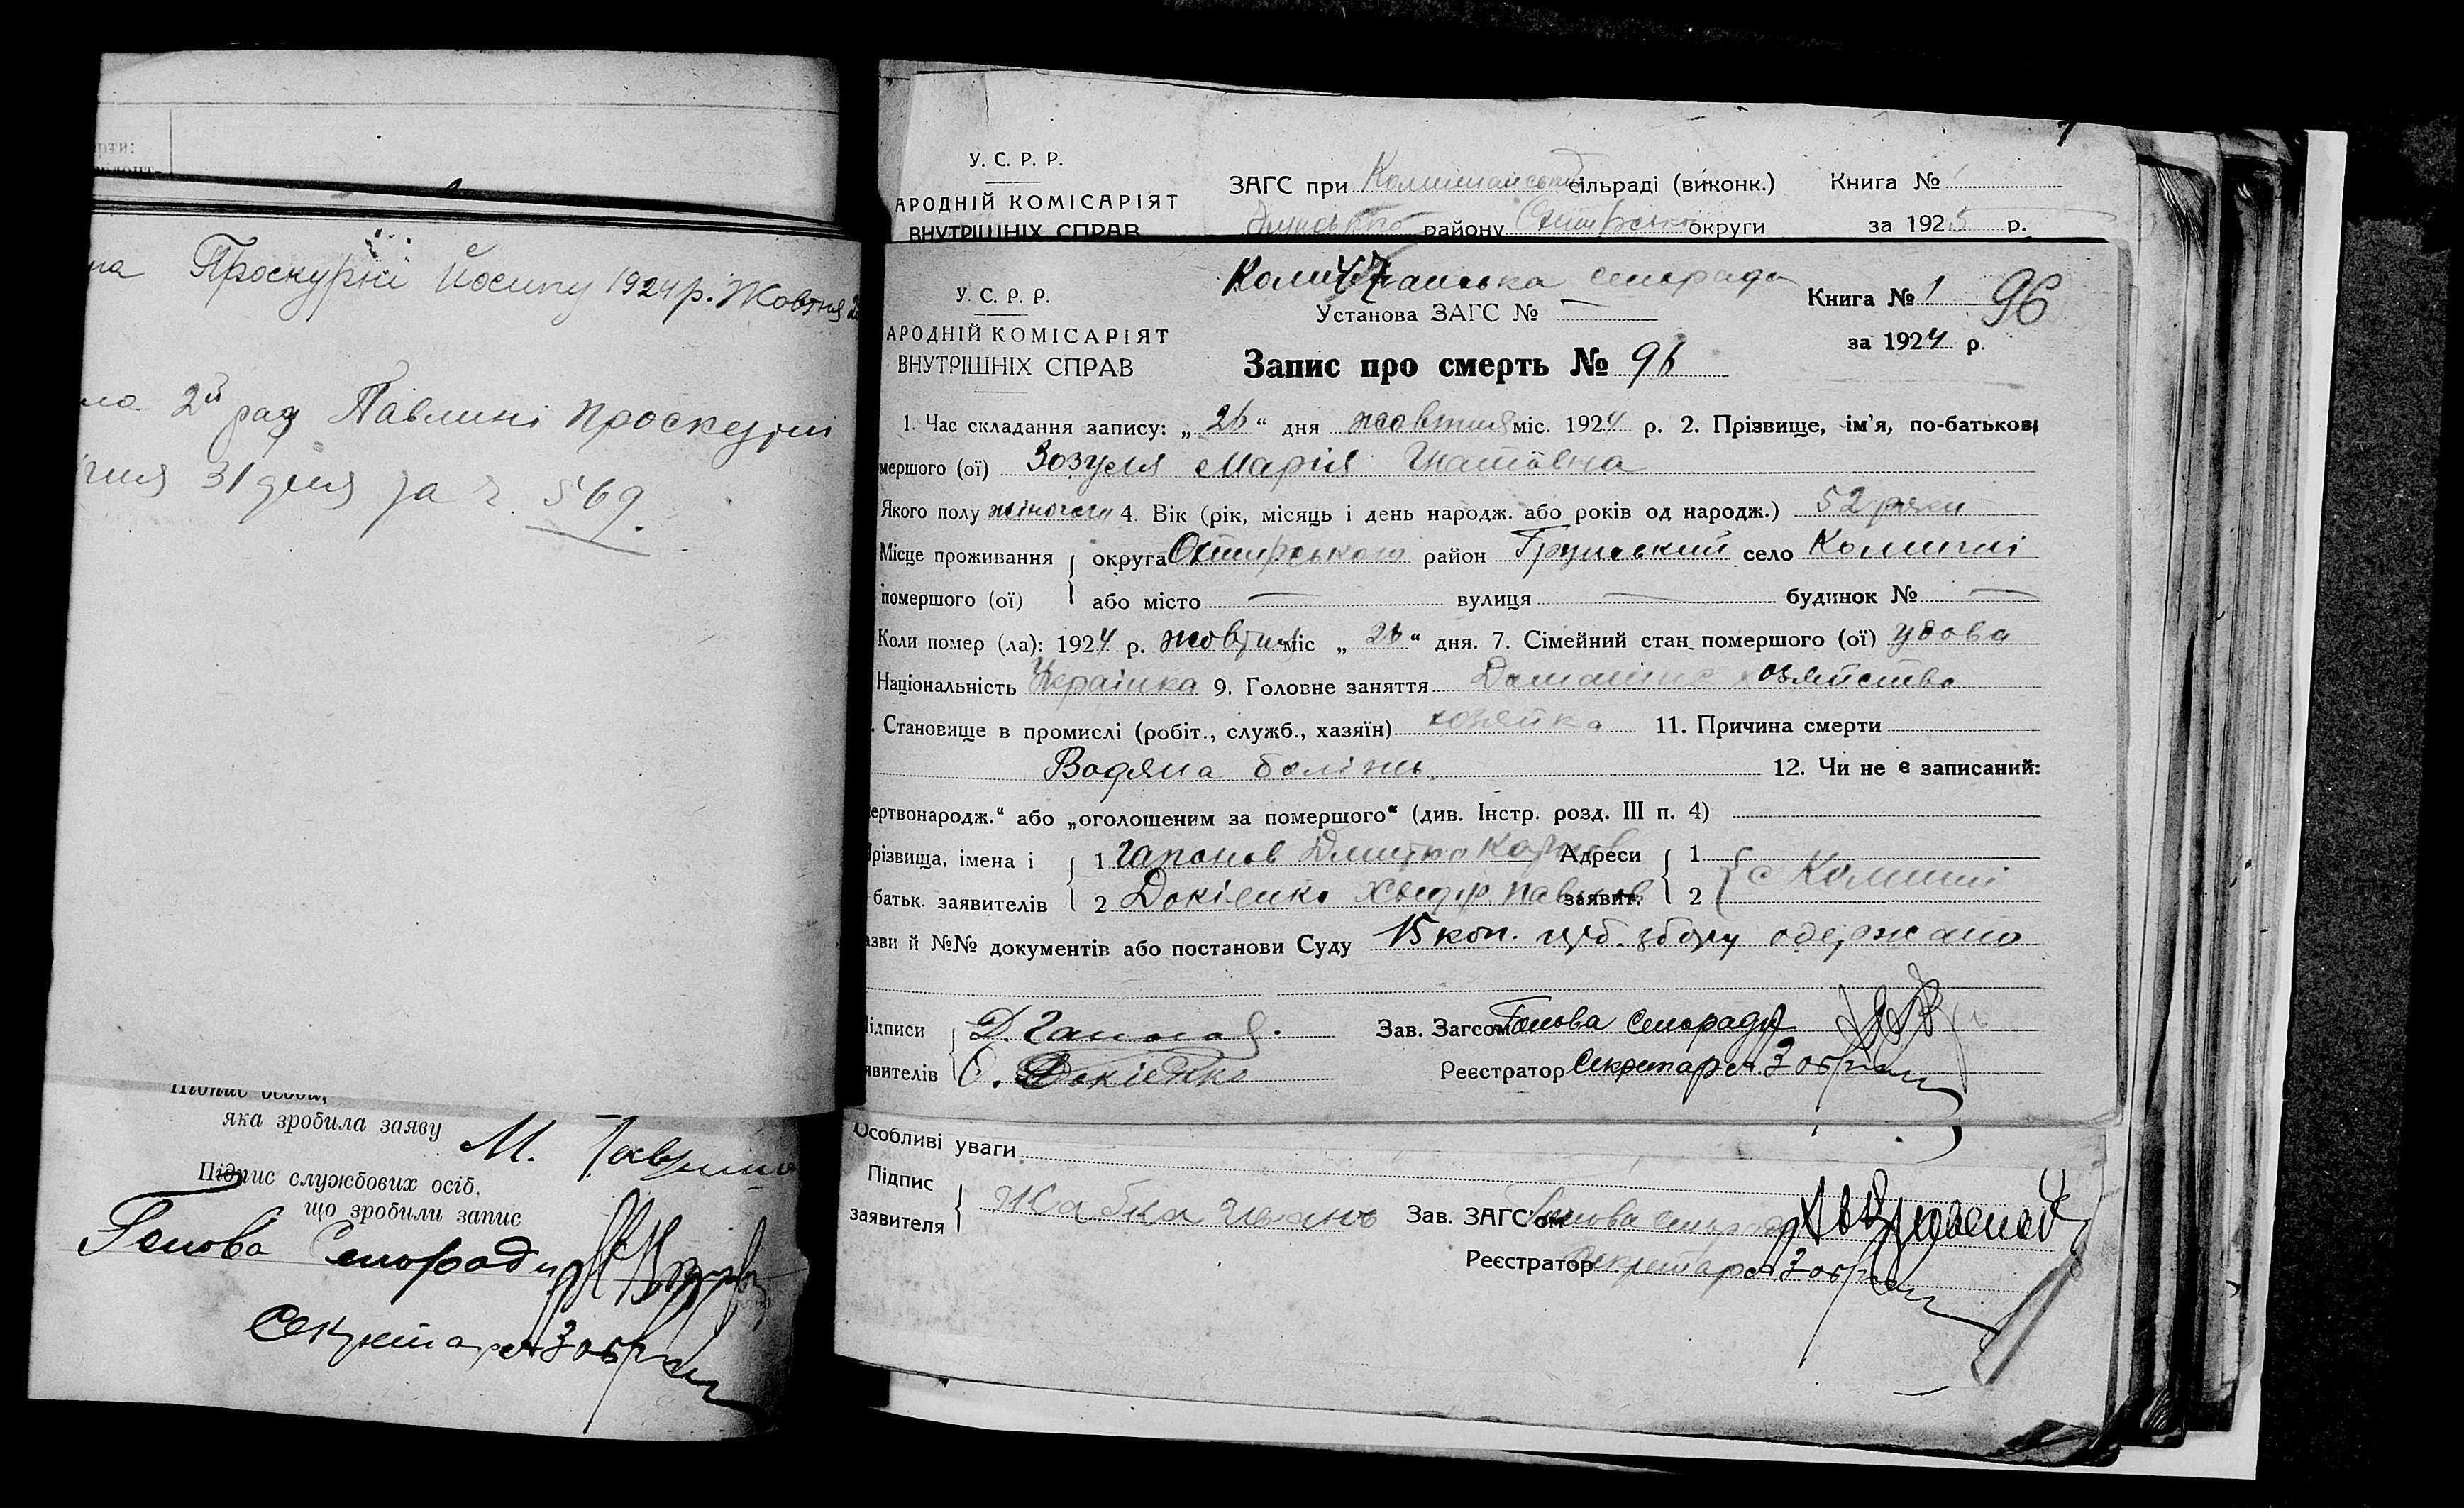 рти:
на Проскурні Йосипу 1924 р. Жовтня
на 2й раз Павлині Проскурні
тня 31 дня за № 569.
Підпис особи,
яка зробила заяву М.
Підпис службових осіб,
що зробили запис
Голова Сельради
Секретарь
У. С. Р. Р.
АРОДНІЙ КОМІСАРІЯТ
ВНУТРІШНІХ СПРАВ
ЗАГС при сільраді (виконк.)
району округи
Книга № 1
за 1925 р.
У. С. Р. Р.
АРОДНІЙ КОМІСАРІЯТ
ВНУТРІШНІХ СПРАВ
сельрада
Установа ЗАГС № —
Книга № 1 96
за 1924 р.
Запис про смерть № 96
1. Час складання запису: „ 26 “ дня жовтня міс. 1924 р. 2. Прізвище, ім'я, по-батькові
мершого (ої) Зозуля Марія Гнатівна
Якого полу жіночого 4. Вік (рік, місяць і день народж. або років од народж.) 52 роки
Місце проживання округа Охтирського район Грунський село Комиші
помершого (ої) або місто — вулиця — будинок № —
Коли помер (ла): 1924 р. жовтня міс „ 26 “ дня. 7. Сімейний стан помершого (ої) удова
Національність Українка 9. Головне заняття Домашнє хозяйство
. Становище в промислі (робіт., служб., хазяїн) хозяйка 11. Причина смерти
Водяна болізнь 12. Чи не є записаний:
ертвонародж.“ або „оголошеним за помершого“ (див. Інстр. розд. III п. 4)
Прізвища, імена і 1 Гапонов Дмитро Карпов Адреси 1
батьк. заявителів 2 Докієнко Хведір Павлов заявит. 2 с Комиші
азви й №№ документів або постанови Суду 15 коп. гцб. збору одержано
Підписи Д. Гапонов. Зав. Загсом Голова Сельради
явителів Докієнко Реєстратор Секретарь
Особливі уваги
Підпис
заявителя Жабка Иванъ Зав. ЗАГСом Голова Сельради
Реєстратор Секретарь